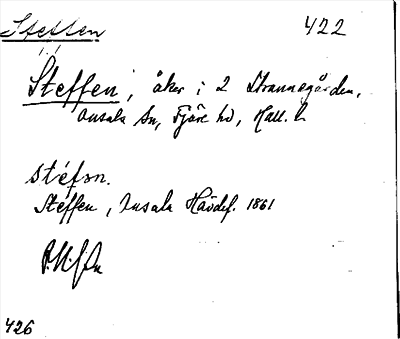 Steffen 422
Steffen, åker i 2 Strannegården,
Onsala sn, Fjäre hd, Hall. l.
stéfən.
Steffen, Onsala Häodef. 1861
426